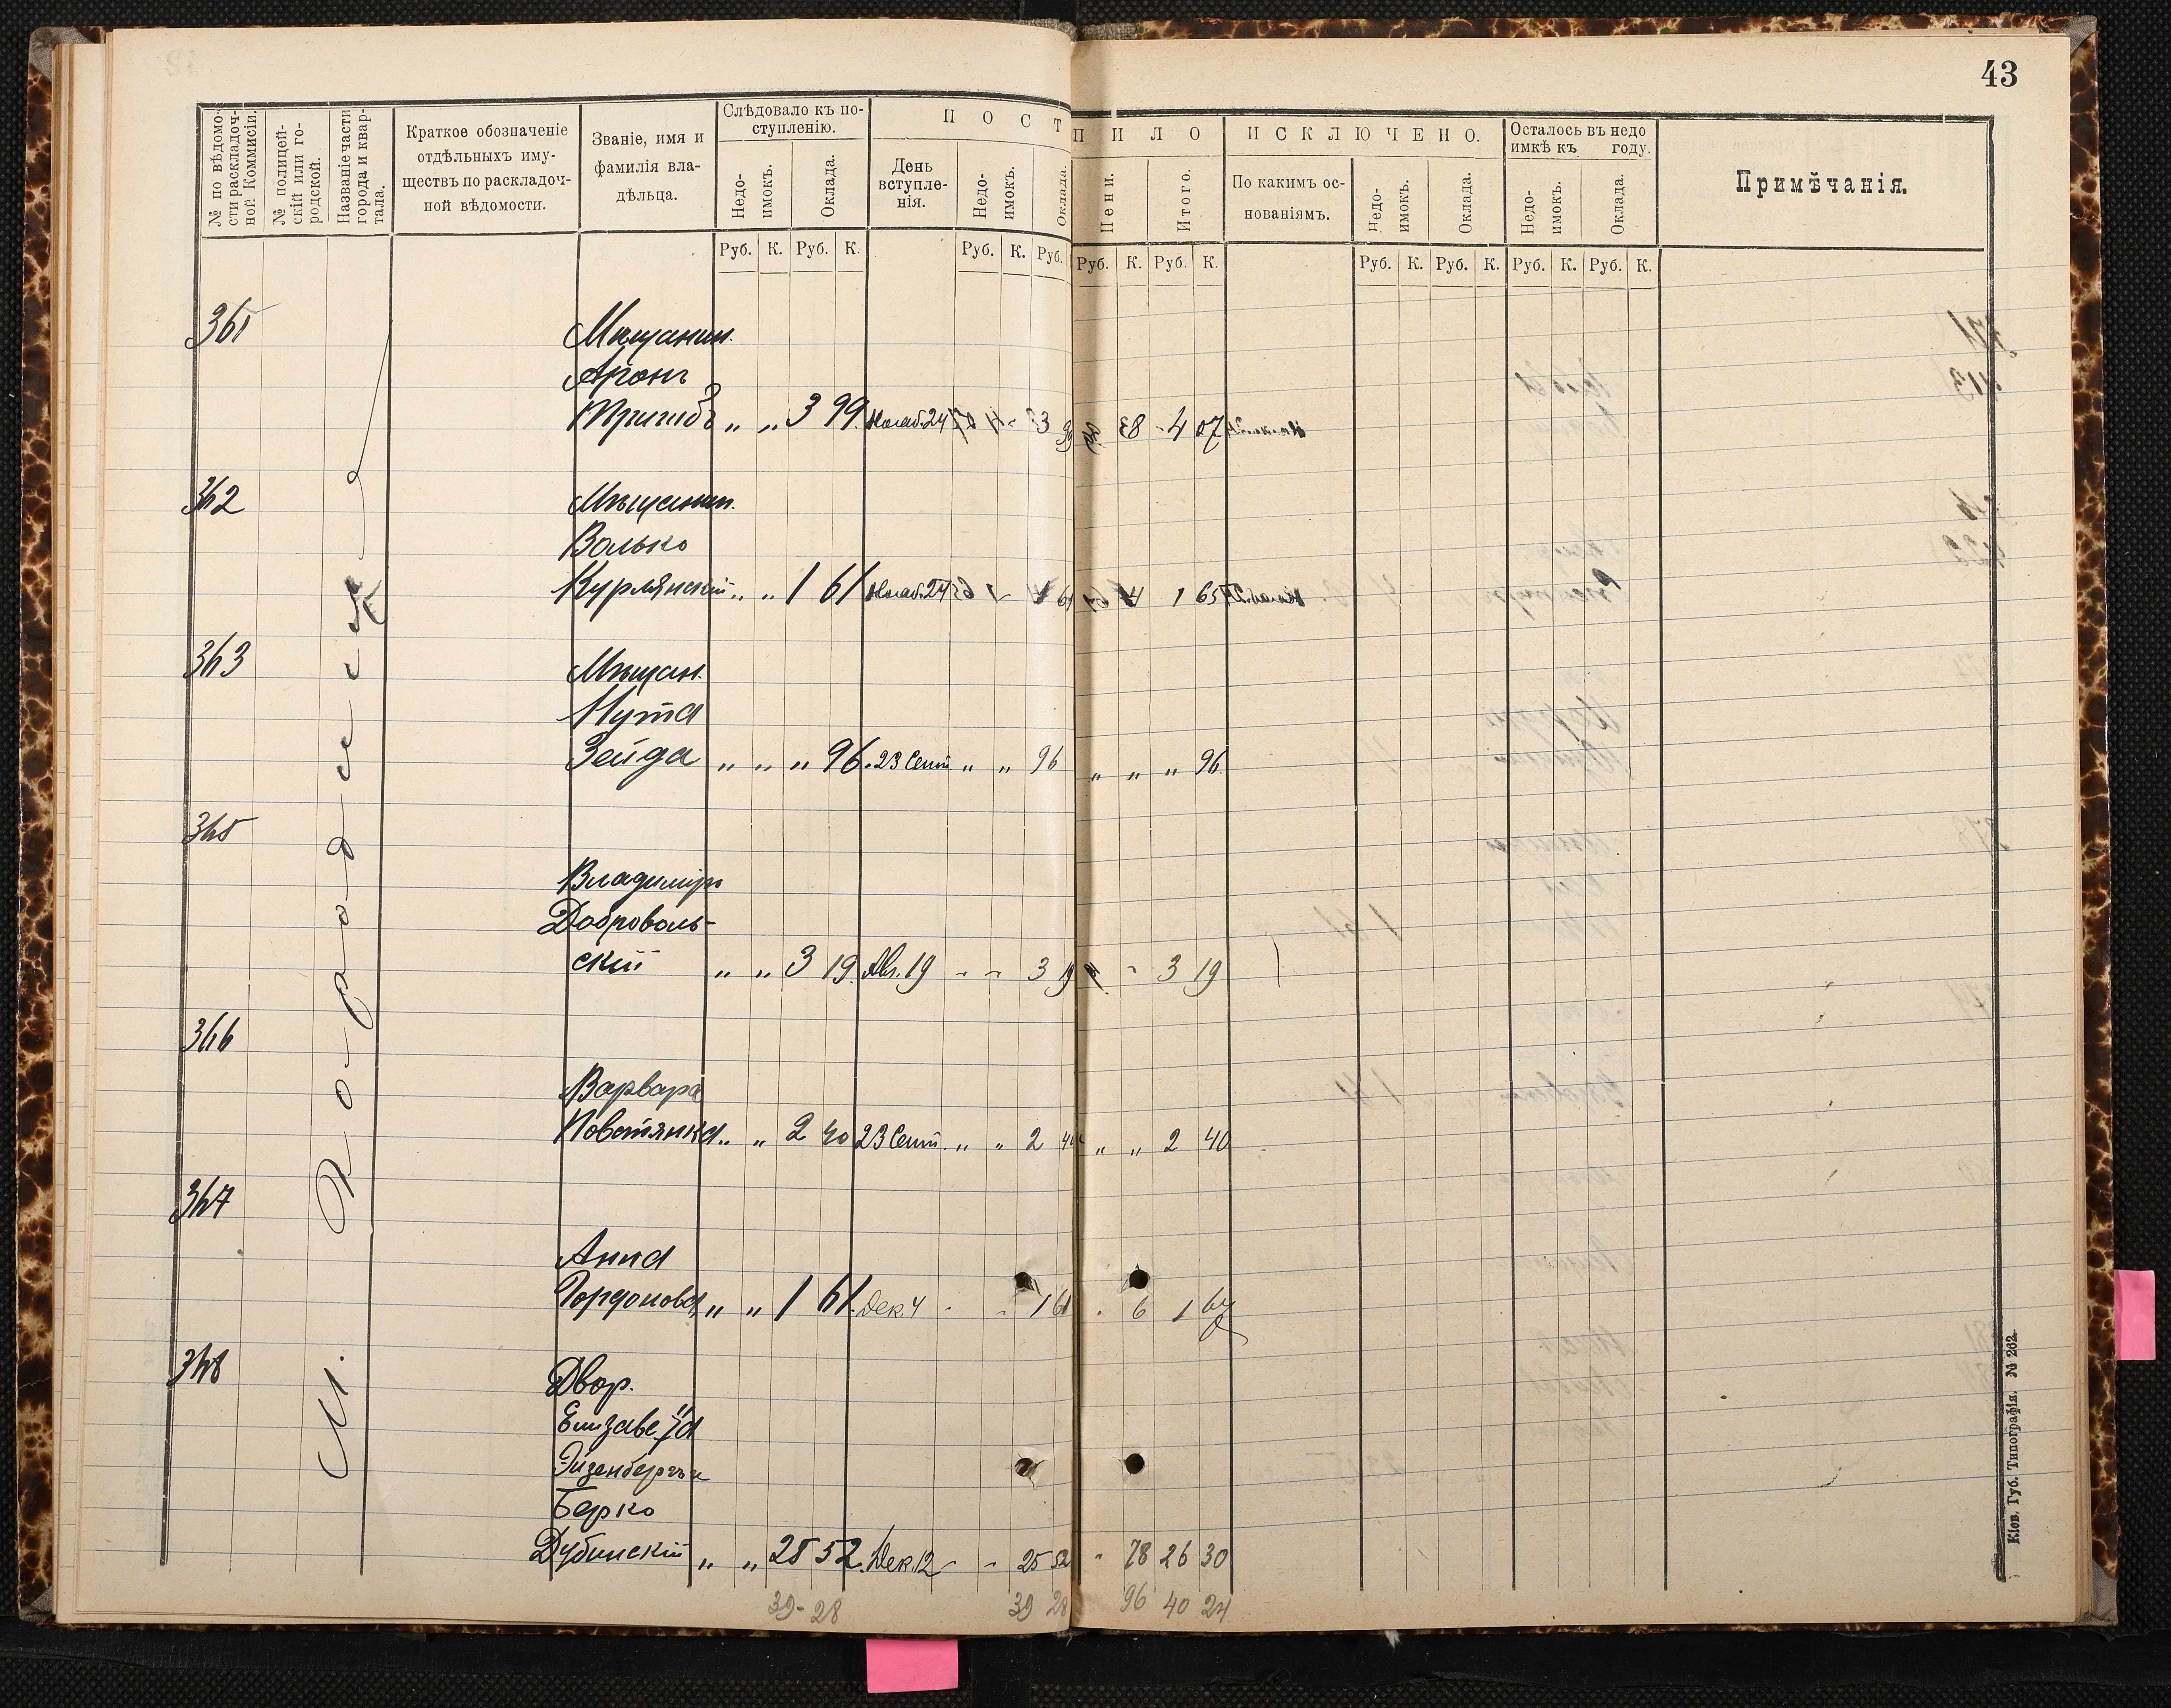 43
№ по вѣдомости раскладочной Коммисіи.
№ полицейскій или городской.
Названіе части города и квартала.
Краткое обозначеніе отдѣльныхъ имуществъ по раскладочной вѣдомости.
Званіе, имя и фамилія владѣльца.
Слѣдовало къ поступленію.
Недоимокъ.
Оклада.
ПОСТ
ПИЛО
День вступленія.
Недоимокъ.
Оклада.
Пени.
Итого.
ИСКЛЮЧЕНО.
По какимъ основаніямъ.
Недоимокъ.
Оклада.
Осталось въ недо
имкѣ къ году.
Недоимокъ.
Оклада.
Примѣчанія.
Руб. К. Руб. К. Руб. К. Руб. Руб. К. Руб. К. Руб. К. Руб. К. Руб. К. Руб. К.
М. Город
361
Мѣщанин.
Аронъ
„ „ 3 99 Нояб. 24 3 99 8 4 07
362
Мѣщанин.
Волько
Курлянскій „ „ 1 61 Нояб. 24 1 61 4 1 65
363
Мѣщан.
Нута
Зейда „ „ „ 96 23 Сент „ „ 96 „ „ „ 96
365
Владиміръ
Доброволь-
скій „ „ 3 19 Авг. 19 - - 3 19 - 3 19
366
Варвара
„ „ 2 40 23 Сент. „ „ 2 40 „ „ 2 40
367
Анна
Гордонова „ „ 1 61 Дек. 4 - - 1 61 - 6 1 67
368
Двор.
Елизавета
Эйзенбергъ и
Берко
Дубинскій „ „ 25 52 Дек. 12 - - 25 52 - 78 26 30
39-28 39 28 96 40 24
Кіев. Губ. Типографія. № 262.